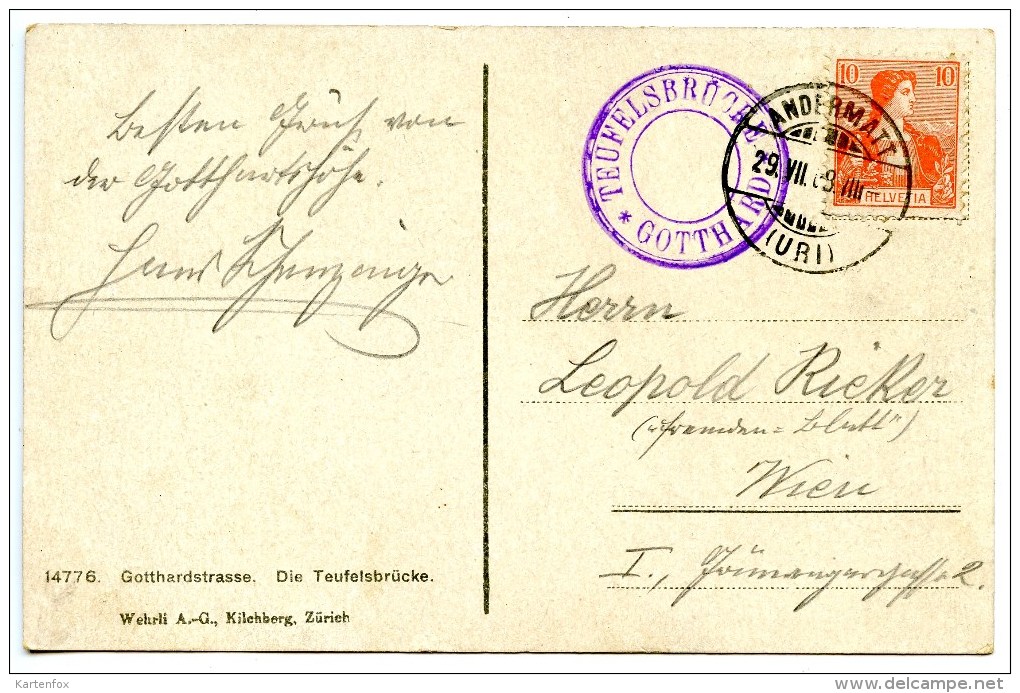 Besten Gruß von
der Gotthartshöhe.
Hans
TEUFELSBRÜCKE
* GOTTHARD *
ANDERMATT
29. VII. 08. VIII
(URI)
10 10
HELVETIA
Herrn
Leopold Ricker
("Fremden=Blatt")
Wien
I.,
14776. Gotthardstrasse. Die Teufelsbrücke.
Wehrli A.-G., Kilchberg, Zürich
Kartenfox
delcampe.net